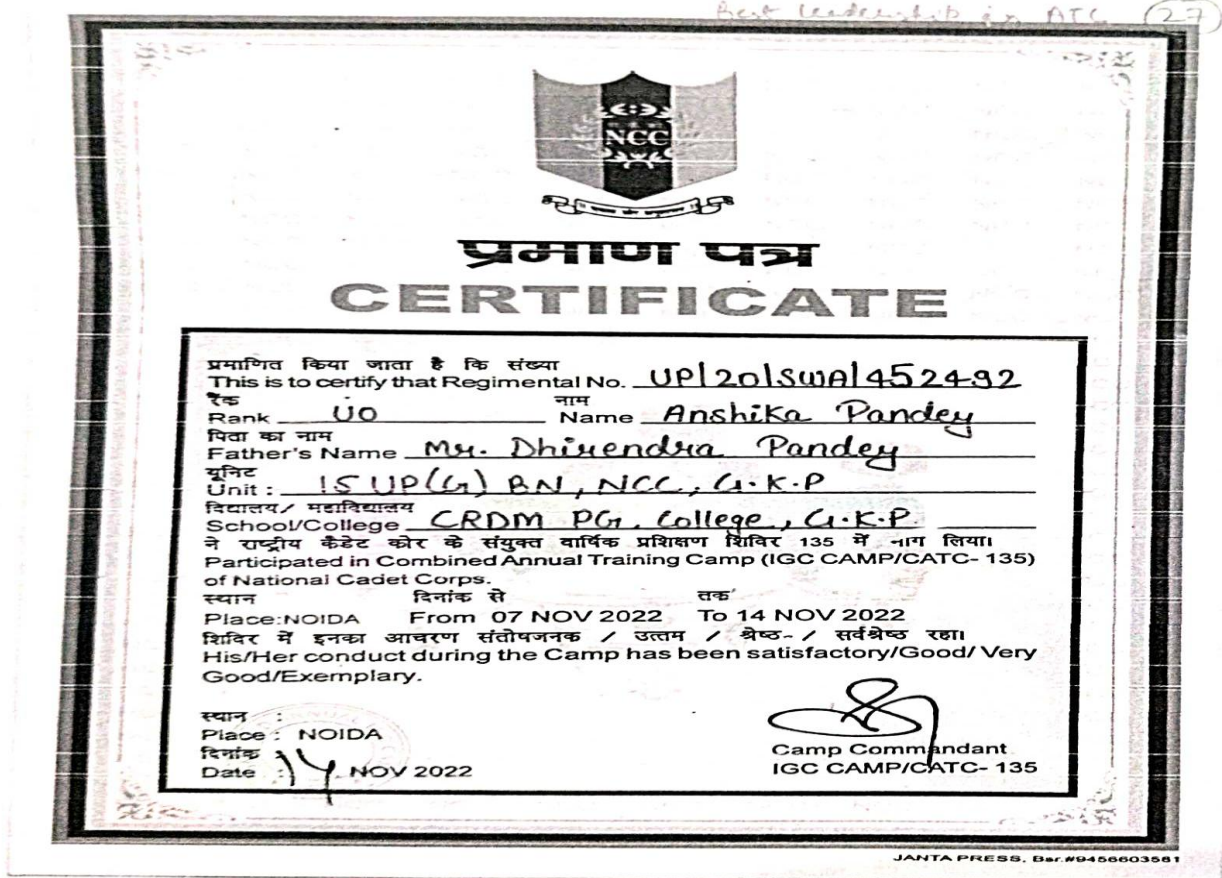 Best leadership in ATC 27
NCC
प्रमाण पत्र
CERTIFICATE
प्रमाणित किया जाता है कि संख्या
This is to certify that Regimental No. UP|20|SWA|452492
रैंक नाम
Rank UO Name Anshika Pandey
पिता का नाम
Father's Name Mr. Dhirendra Pandey
यूनिट
Unit : 15 UP(G) BN, NCC, G.K.P
विद्यालय/ महाविद्यालय
School/College CRDM PG. College, G.K.P.
ने राष्ट्रीय कैडेट कोर के संयुक्त वार्षिक प्रशिक्षण शिविर 135 में भाग लिया।
Participated in Combined Annual Training Camp (IGC CAMP/CATC- 135)
of National Cadet Corps.
स्थान दिनांक से तक
Place:NOIDA From 07 NOV 2022 To 14 NOV 2022
शिविर में इनका आचरण संतोषजनक / उत्तम / श्रेष्ठ- / सर्वश्रेष्ठ रहा।
His/Her conduct during the Camp has been satisfactory/Good/ Very
Good/Exemplary.
स्थान :
Place : NOIDA
दिनांक
Date : 14 NOV 2022
Camp Commandant
IGC CAMP/CATC- 135
JANTA PRESS, Bar.#9456603561